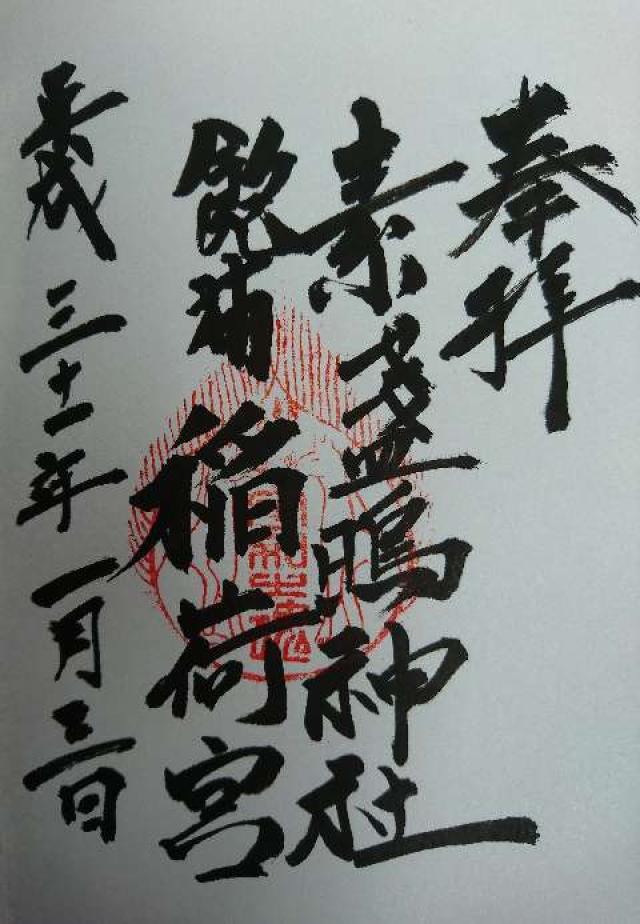 奉拝
素盞嗚神社
稲荷宮
平成三十一年一月三日